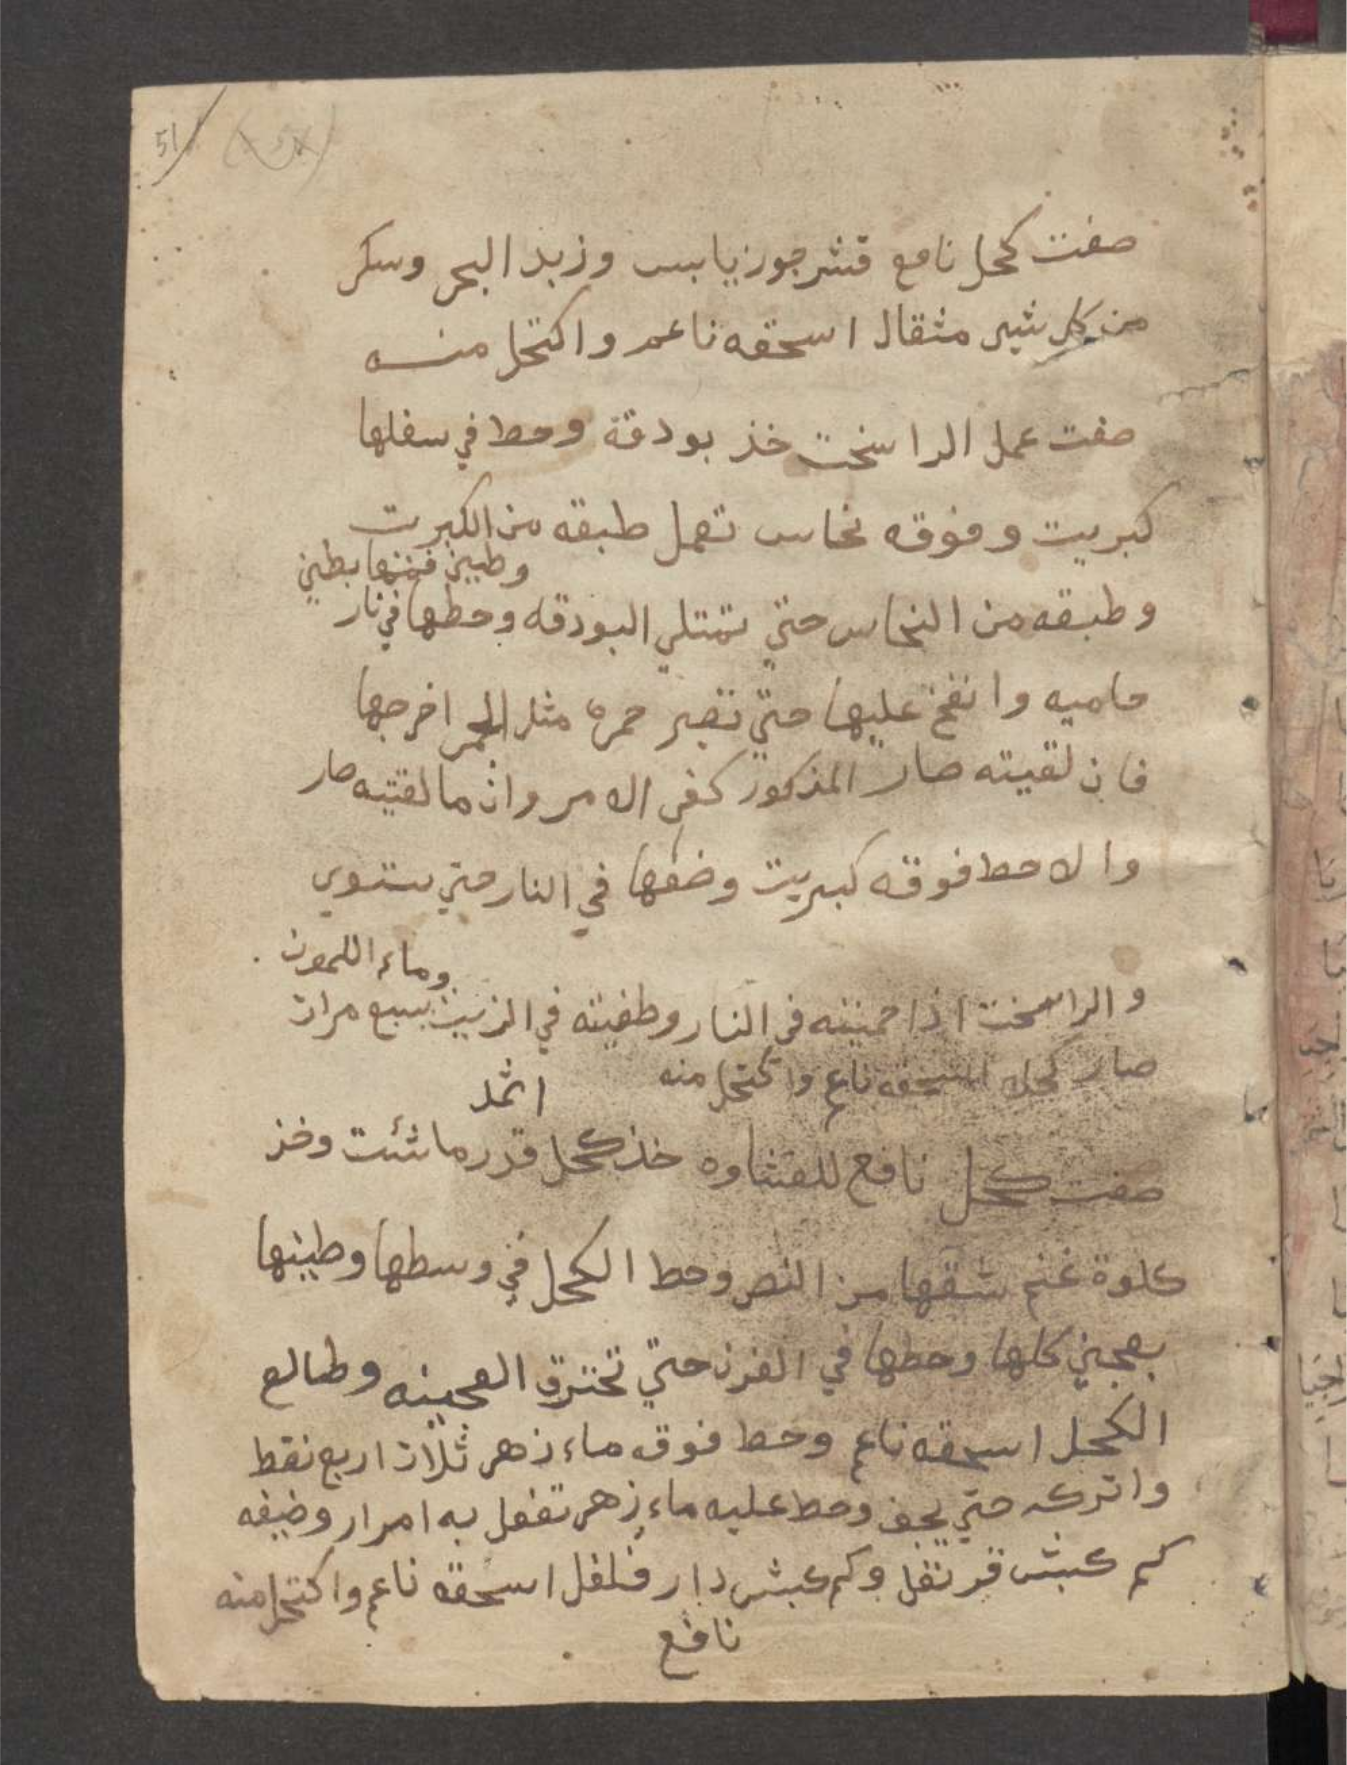 51
صفت كحل نافع قشر جوز يابس وزبد البحر وسكر
من كل شي مثقال اسحقه ناعم واكتحل منه
صفت عمل الراسخت خذ بودقة وحط في سفلها
كبريت وفوقه نحاس تعمل طبقه من الكبريت
وطبقه من النحاس حتي تمتلي البودقه وطين فمها بطين وحطها في نار
حاميه وانفخ عليها حتي تصير حمره مثل الجمر اخرجها
فان لقيته صار المذكور كفى الامر وان ما لقيته صار
والا حط فوقه كبريت وضعها في النار حتي يستوي
والراسخت اذا حميته في النار وطفيته في الزيت وماء اللمون سبع مرات
صار كحل اسحقه ناعم واكتحل منه
صفت كحل نافع للغشاوه خذ كحل اثمد قدر ما شئت وخذ
كلوة غنم شقها من النص وحط الكحل في وسطها وطينها
بعجين كلها وحطها في الفرن حتي تحترق العجينه وطالع
الكحل اسحقه ناعم وحط فوقه ماء زهر ثلاث اربع نقط
واتركه حتي يجف وحط عليه ماء زهر تفعل به امرار وضيفه
كم كبش قرنفل وكم كبش دار فلفل اسحقه ناعم واكتحل منه
نافع